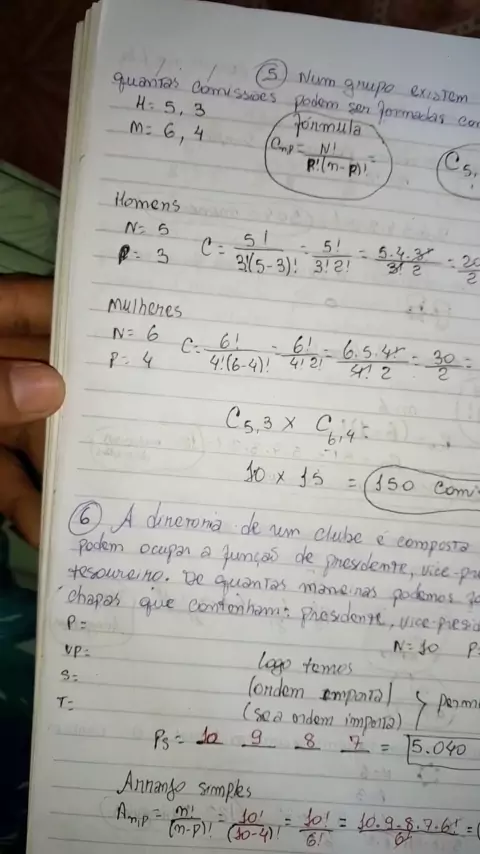 ⑤ Num grupo existem
quantas comissões podem ser formadas co
H = 5, 3
M = 6, 4
fórmula
Cn,p = N! / P!(n-p)! =
C5,
Homens
N = 5
P = 3
C = 5! / 3!(5-3)! = 5! / 3!2! = 5.4.3! / 3! 2 = 20 / 2
Mulheres
N = 6
P = 4
C = 6! / 4!(6-4)! = 6! / 4!2! = 6.5.4! / 4! 2 = 30 / 2 =
C5,3 x C6,4 =
10 x 15 = 150 comi
⑥ A diretoria de um clube é composta
podem ocupar a função de presidente, vice-pr
tesoureiro. De quantas maneiras podemos
chapas que contenham: presidente, vice-presid
N = 10 P =
P =
VP =
S =
T =
logo temos
(ordem importa)
(se a ordem importa)
} perm
Ps = 10 9 8 7 = 5.040
Arranjo simples
An,p = n! / (n-p)! = 10! / (10-4)! = 10! / 6! = 10.9.8.7.6! / 6! =